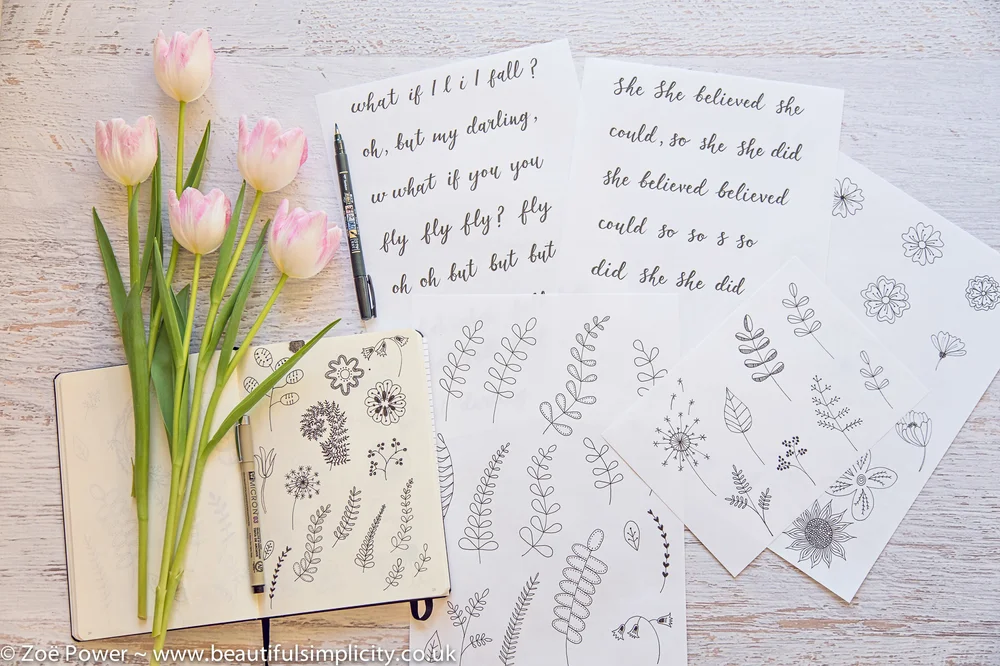 what if I l i I fall ?
oh, but my darling,
w what if you you
fly fly fly? fly
oh oh but but but
She She believed she
could, so she she did
she believed believed
could so so s so
did she she did
MICRON
© Zoë Power ~ www.beautifulsimplicity.co.uk